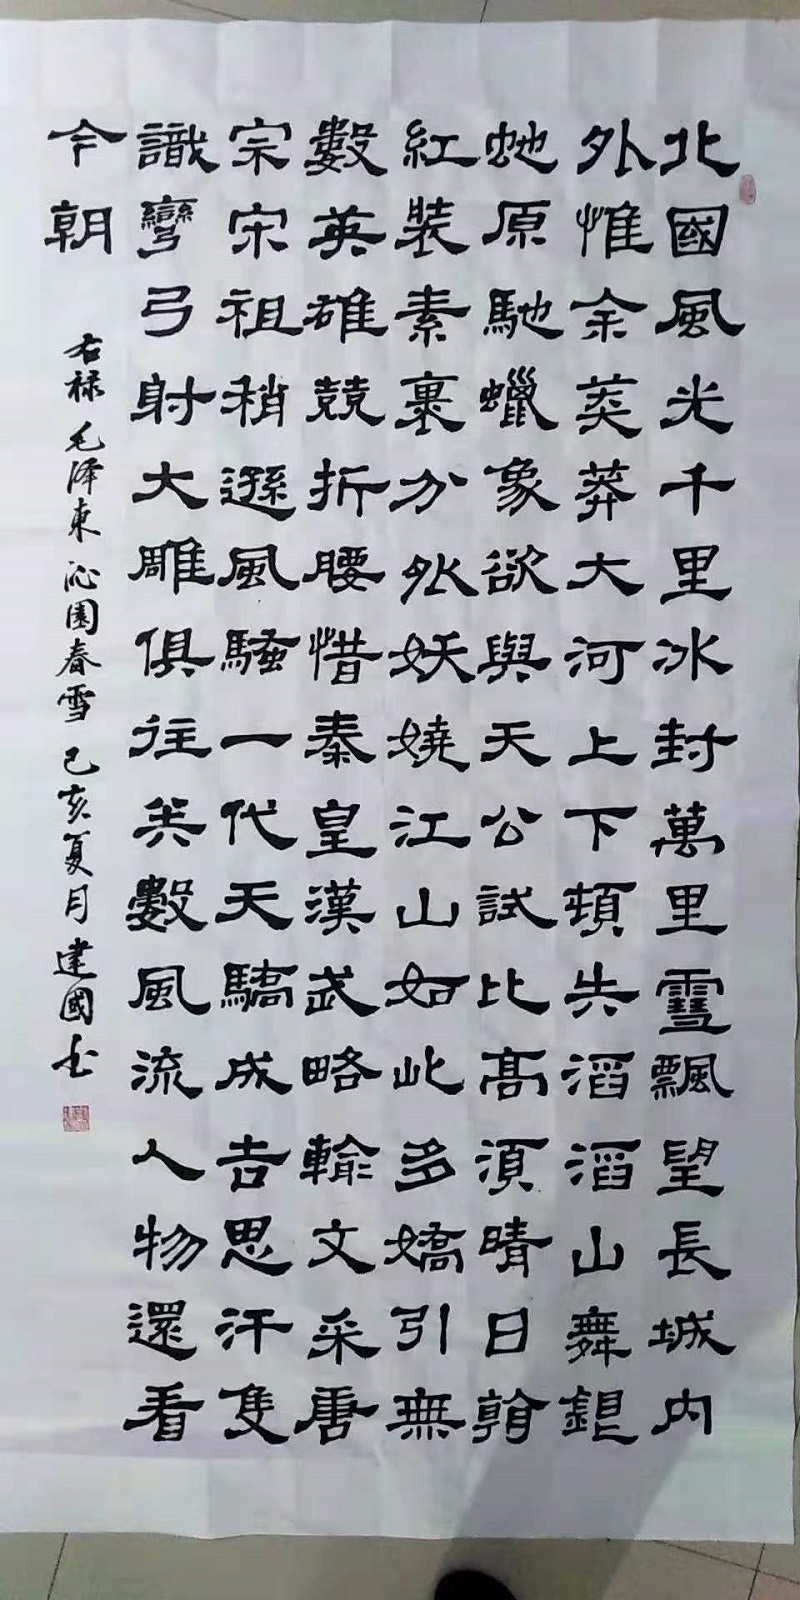 北國風光千里冰封萬里雪飄望長城内
外惟余莽莽大河上下頓失滔滔山舞銀
蛇原馳蠟象欲與天公試比高須晴日看
紅裝素裹分外妖嬈江山如此多嬌引無
數英雄競折腰惜秦皇漢武略輸文采唐
宗宋祖稍遜風騷一代天驕成吉思汗隻
識彎弓射大雕俱往矣數風流人物還看
今朝
右禄毛泽東沁園春雪己亥夏月建國书